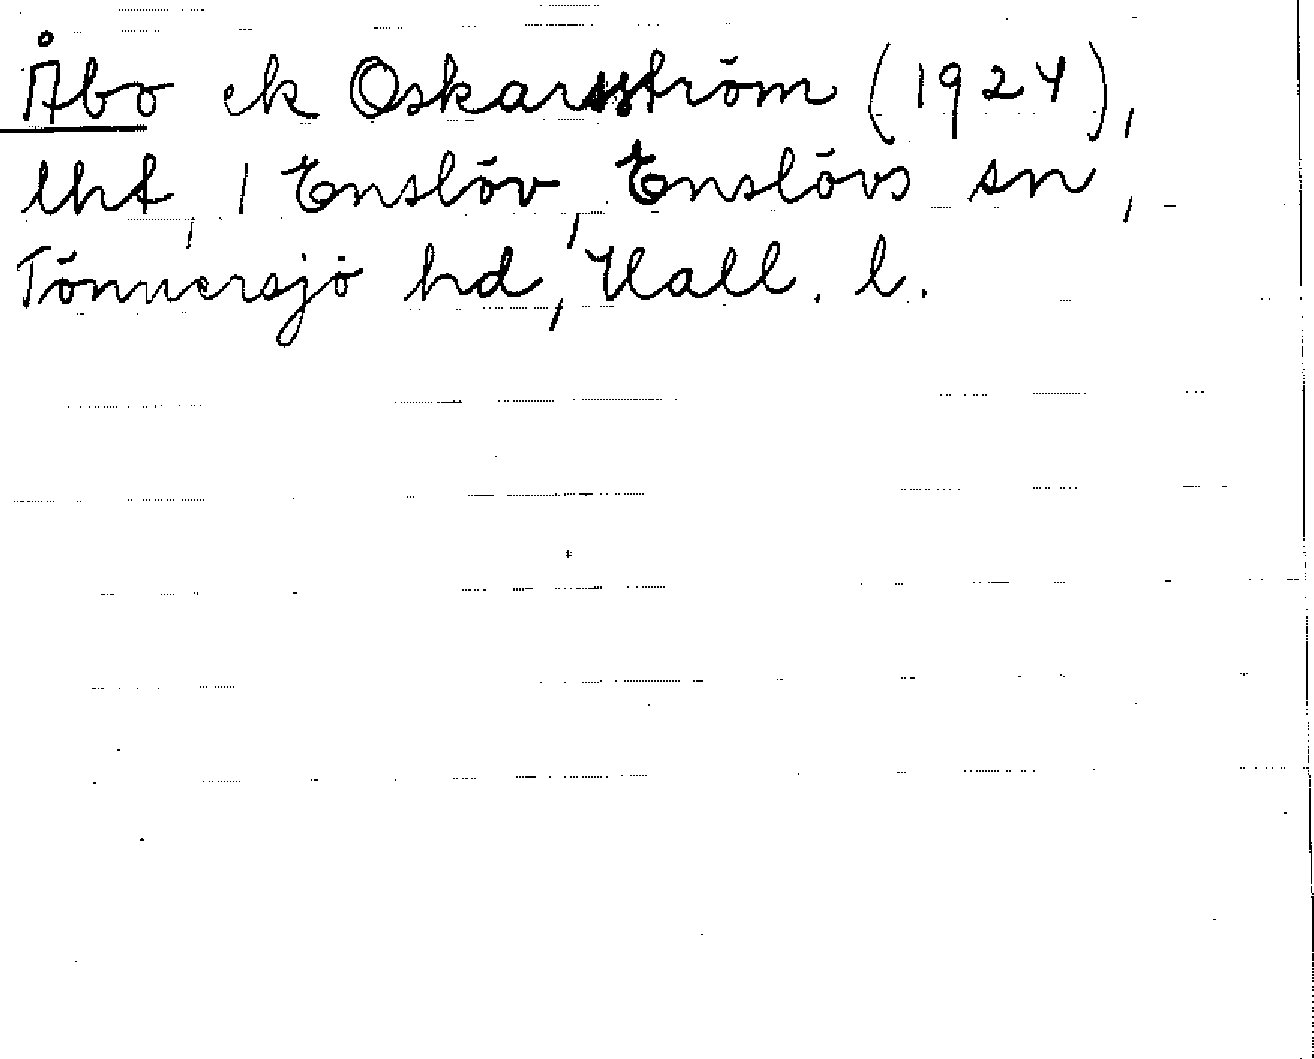 Åbo ek Oskarsström (1924),
lht, 1 Enslöv, Enslövs sn,
Tönnersjö hd, Hall. l.